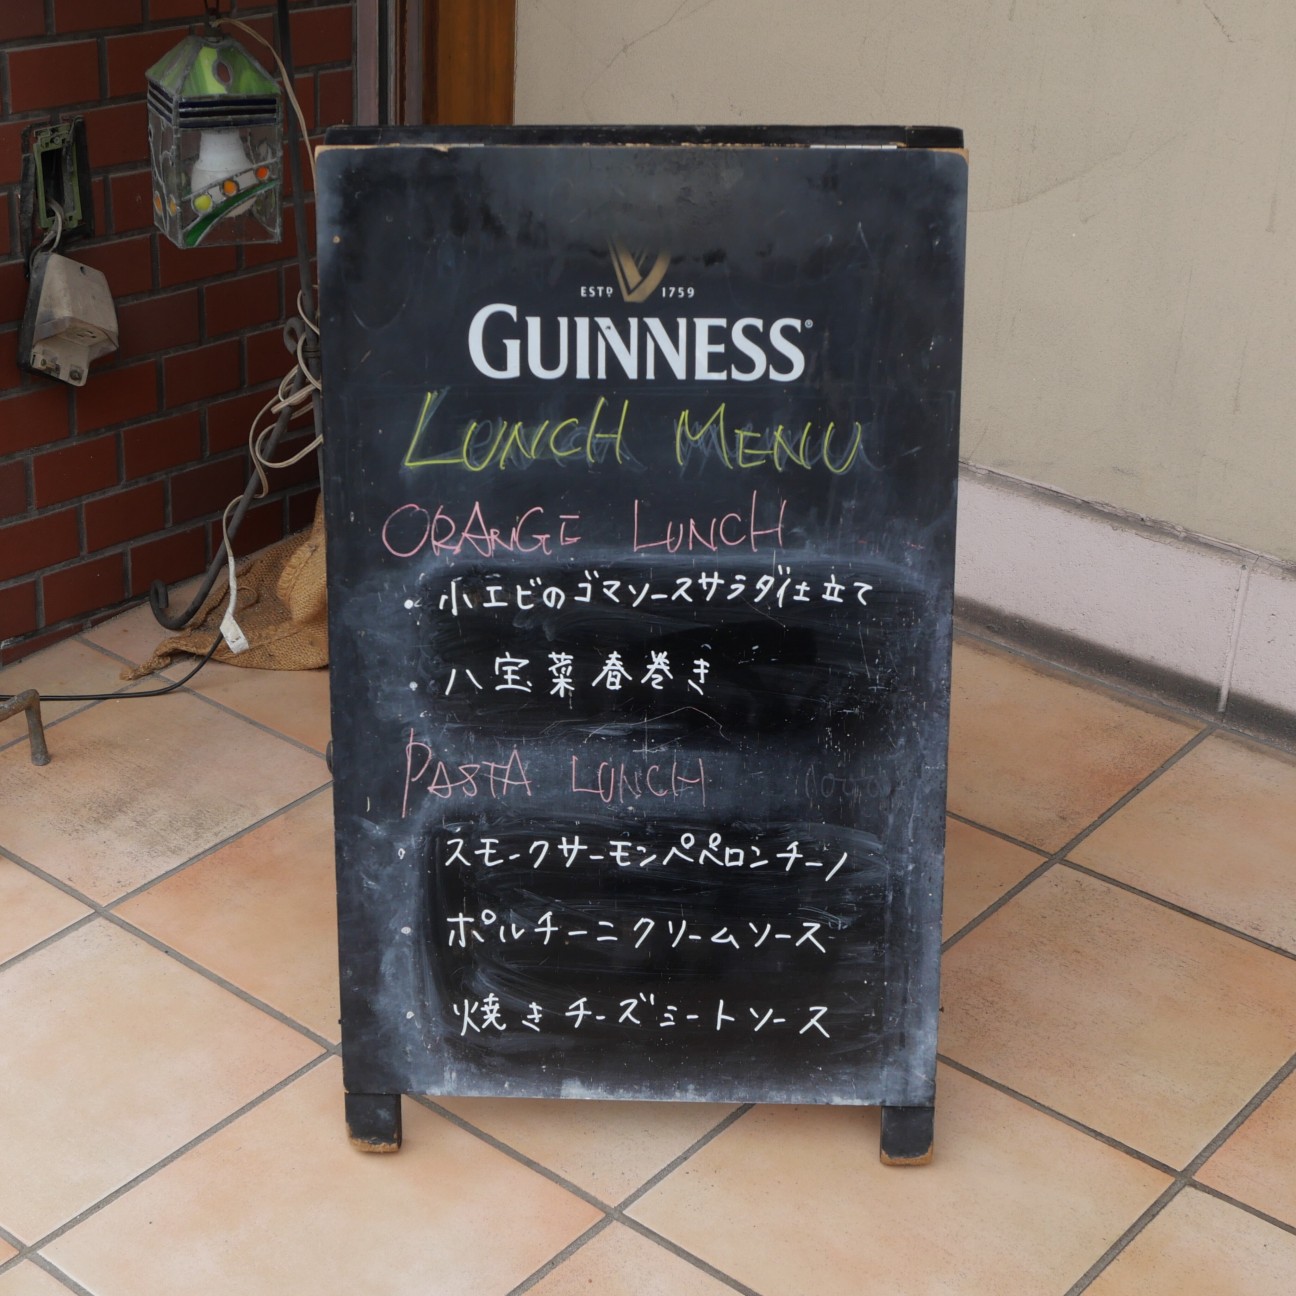 ESTD 1759
GUINNESS®
LUNCH MENU
ORANGE LUNCH
・小エビのゴマソースサラダ仕立て
・八宝菜春巻き
PASTA LUNCH
・スモークサーモンペペロンチーノ
・ポルチーニクリームソース
・焼きチーズミートソース